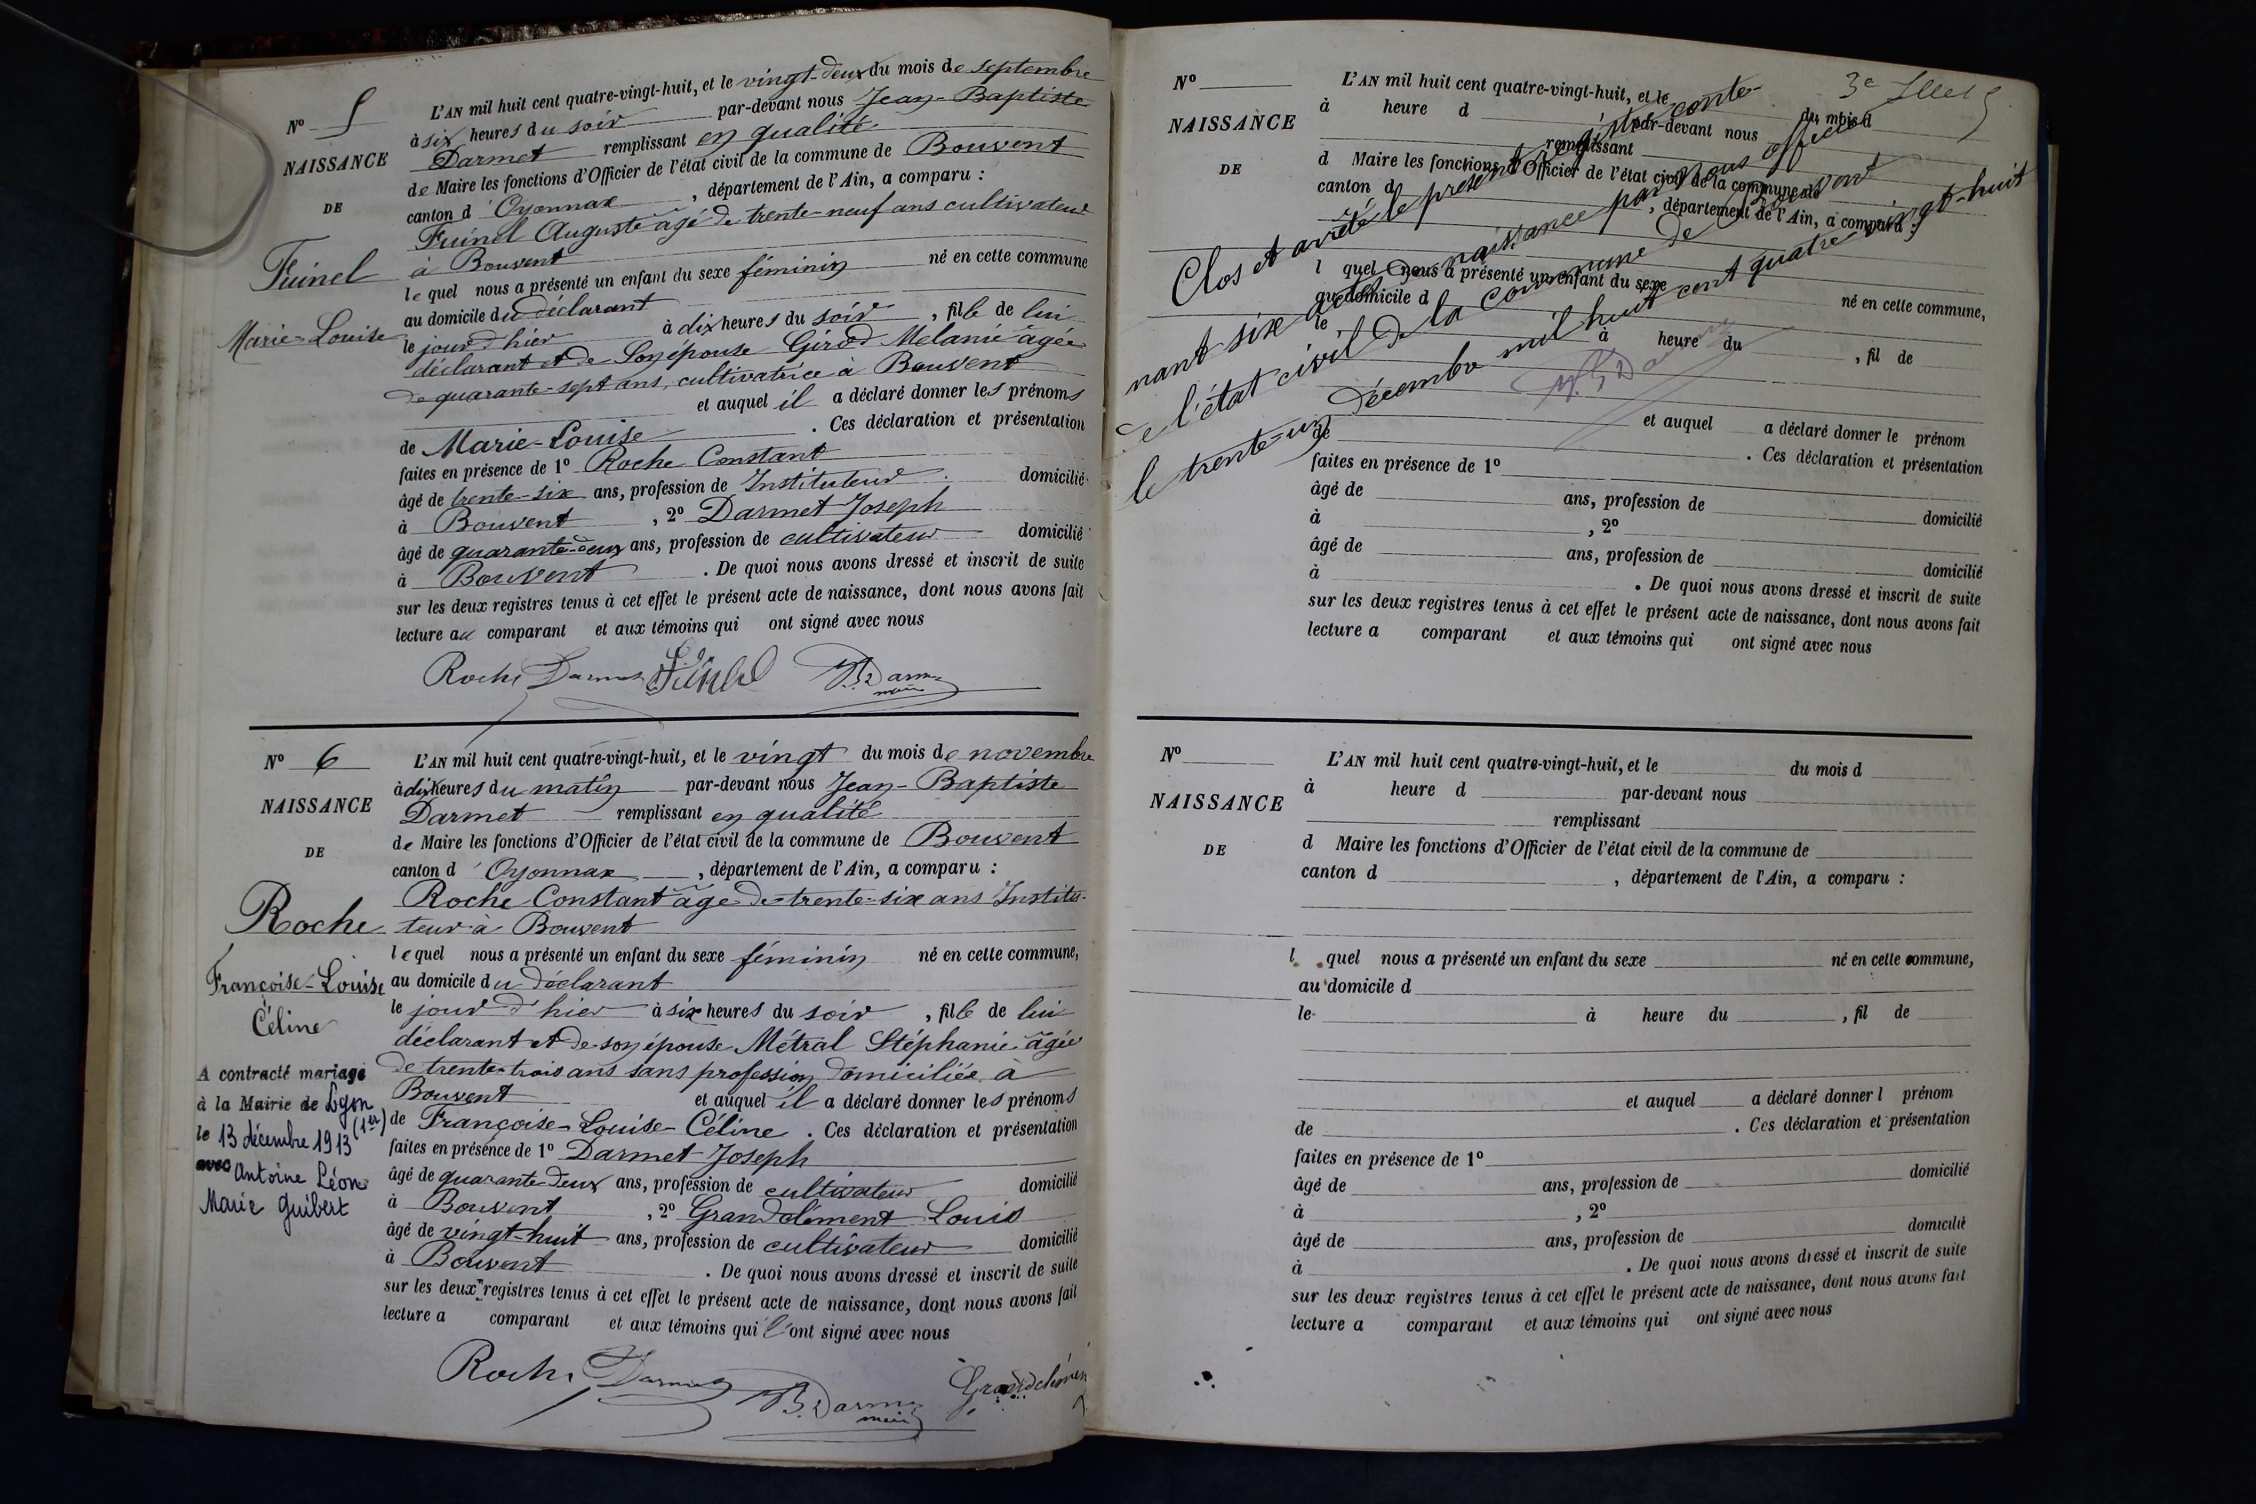 N° 5
NAISSANCE
DE
Fuinel
Marie-Louise
L'AN mil huit cent quatre-vingt-huit, et le vingt-deux du mois de septembre
à six heures du soir par-devant nous Jean-Baptiste
Darmet remplissant en qualité
de Maire les fonctions d'Officier de l'état civil de la commune de Bouvent
canton d'Oyonnax, département de l'Ain, a comparu :
Fuinel Auguste âgé de trente-neuf ans cultivateur
à Bouvent
lequel nous a présenté un enfant du sexe féminin né en cette commune
au domicile du déclarant
le jour d'hier à dix heures du soir, fille de lui
déclarant et de son épouse Girod Mélanie âgée
de quarante-sept ans, cultivatrice à Bouvent
et auquel il a déclaré donner les prénoms
de Marie-Louise. Ces déclaration et présentation
faites en présence de 1° Roche Constant
âgé de trente-six ans, profession de Instituteur domicilié
à Bouvent, 2° Darmet Joseph
âgé de quarante-deux ans, profession de cultivateur domicilié
à Bouvent. De quoi nous avons dressé et inscrit de suite
sur les deux registres tenus à cet effet le présent acte de naissance, dont nous avons fait
lecture au comparant et aux témoins qui ont signé avec nous
Roche Darmet Fuinel JB Darmet
maire
N° 6
NAISSANCE
DE
Roche
Françoise-Louise
Céline
A contracté mariage
à la Mairie de Lyon (1er)
le 13 décembre 1913
avec Antoine Léon
Marie Guibert
L'AN mil huit cent quatre-vingt-huit, et le vingt du mois de novembre
à dix heures du matin par-devant nous Jean-Baptiste
Darmet remplissant en qualité
de Maire les fonctions d'Officier de l'état civil de la commune de Bouvent
canton d'Oyonnax, département de l'Ain, a comparu :
Roche Constant âgé de trente-six ans Institu-
teur à Bouvent
lequel nous a présenté un enfant du sexe féminin né en cette commune,
au domicile du déclarant
le jour d'hier à six heures du soir, fille de lui
déclarant et de son épouse Métral Stéphanie âgée
de trente-trois ans sans profession domiciliée à
Bouvent et auquel il a déclaré donner les prénoms
de Françoise-Louise-Céline. Ces déclaration et présentation
faites en présence de 1° Darmet Joseph
âgé de quarante-deux ans, profession de cultivateur domicilié
à Bouvent, 2° Grandclément Louis
âgé de vingt-huit ans, profession de cultivateur domicilié
à Bouvent. De quoi nous avons dressé et inscrit de suite
sur les deux registres tenus à cet effet le présent acte de naissance, dont nous avons fait
lecture a comparant et aux témoins qui l'ont signé avec nous
Roche Darmet JB Darmet Grandclément
maire
3e
N°
NAISSANCE
DE
L'AN mil huit cent quatre-vingt-huit, et le du mois d
à heure d par-devant nous
remplissant
d Maire les fonctions d'Officier de l'état civil de la commune de
canton d , département de l'Ain, a comparu :
l quel nous a présenté un enfant du sexe né en cette commune,
au domicile d
le à heure du , fil de
et auquel a déclaré donner le prénom
de . Ces déclaration et présentation
faites en présence de 1°
âgé de ans, profession de domicilié
à , 2°
âgé de ans, profession de domicilié
à . De quoi nous avons dressé et inscrit de suite
sur les deux registres tenus à cet effet le présent acte de naissance, dont nous avons fait
lecture a comparant et aux témoins qui ont signé avec nous
Clos et arrêté le présent registre conte-
nant six actes de naissance par nous officier
de l'état civil de la commune de Bouvent
le trente-un décembre mil huit cent quatre vingt-huit
N°
NAISSANCE
DE
L'AN mil huit cent quatre-vingt-huit, et le du mois d
à heure d par-devant nous
remplissant
d Maire les fonctions d'Officier de l'état civil de la commune de
canton d , département de l'Ain, a comparu :
l quel nous a présenté un enfant du sexe né en cette commune,
au domicile d
le à heure du , fil de
et auquel a déclaré donner l prénom
de . Ces déclaration et présentation
faites en présence de 1°
âgé de ans, profession de domicilié
à , 2°
âgé de ans, profession de domicilié
à . De quoi nous avons dressé et inscrit de suite
sur les deux registres tenus à cet effet le présent acte de naissance, dont nous avons fait
lecture a comparant et aux témoins qui ont signé avec nous